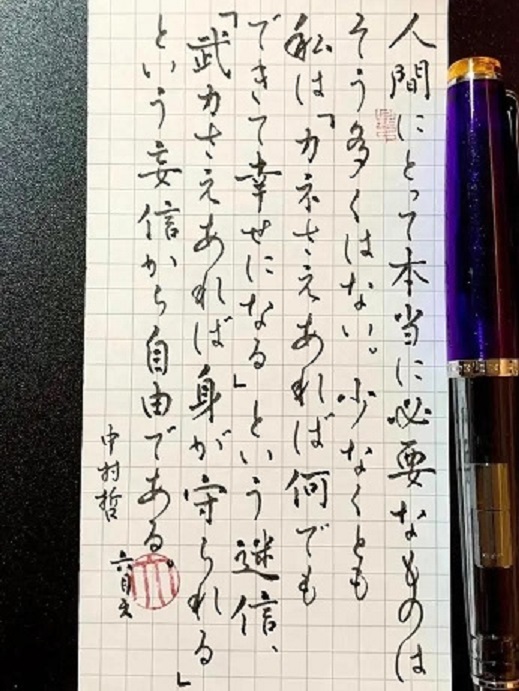 人間にとって本当に必要なものは
そう多くはない。少なくとも
私は「カネさえあれば何でも
できて幸せになる」という迷信、
「武力さえあれば身が守られる」
という妄信から自由である。
中村哲